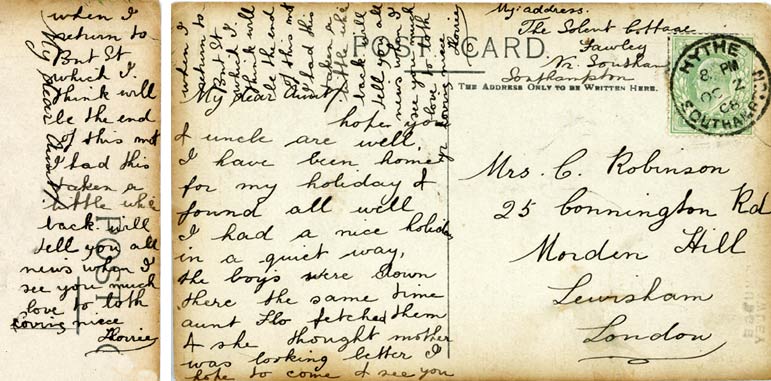 when I
return to
But St
which I
think will
be the end
of this mnt
I had this
taken a
little whi
back will
tell you all
news when I
see you much
love to both
loving niece
Florrie
My dear Aunt
POST
POST CARD.
THE ADDRESS ONLY TO BE WRITTEN HERE.
My address.
The Solent Cottage
Fawley
Nr. Southan
Southampton
HYTHE
8. PM
OC 2
06
SOUTHAMPTON
My dear Aunt
hope you
& uncle are well
I have been home
for my holiday &
found all well
I had a nice holiday
in a quiet way,
the boys were down
there the same time
aunt Flo fetched them
& she thought mother
was looking better I
hope to come & see you
when I
return to
But St
which I
think will
be the end
of this mnt
I had this
taken a
little whi
back will
tell you all
news when I
see you much
love to both
yr loving niece
Florrie
Mrs. C. Robinson
25 Connington Rd
Morden Hill
Lewisham
London